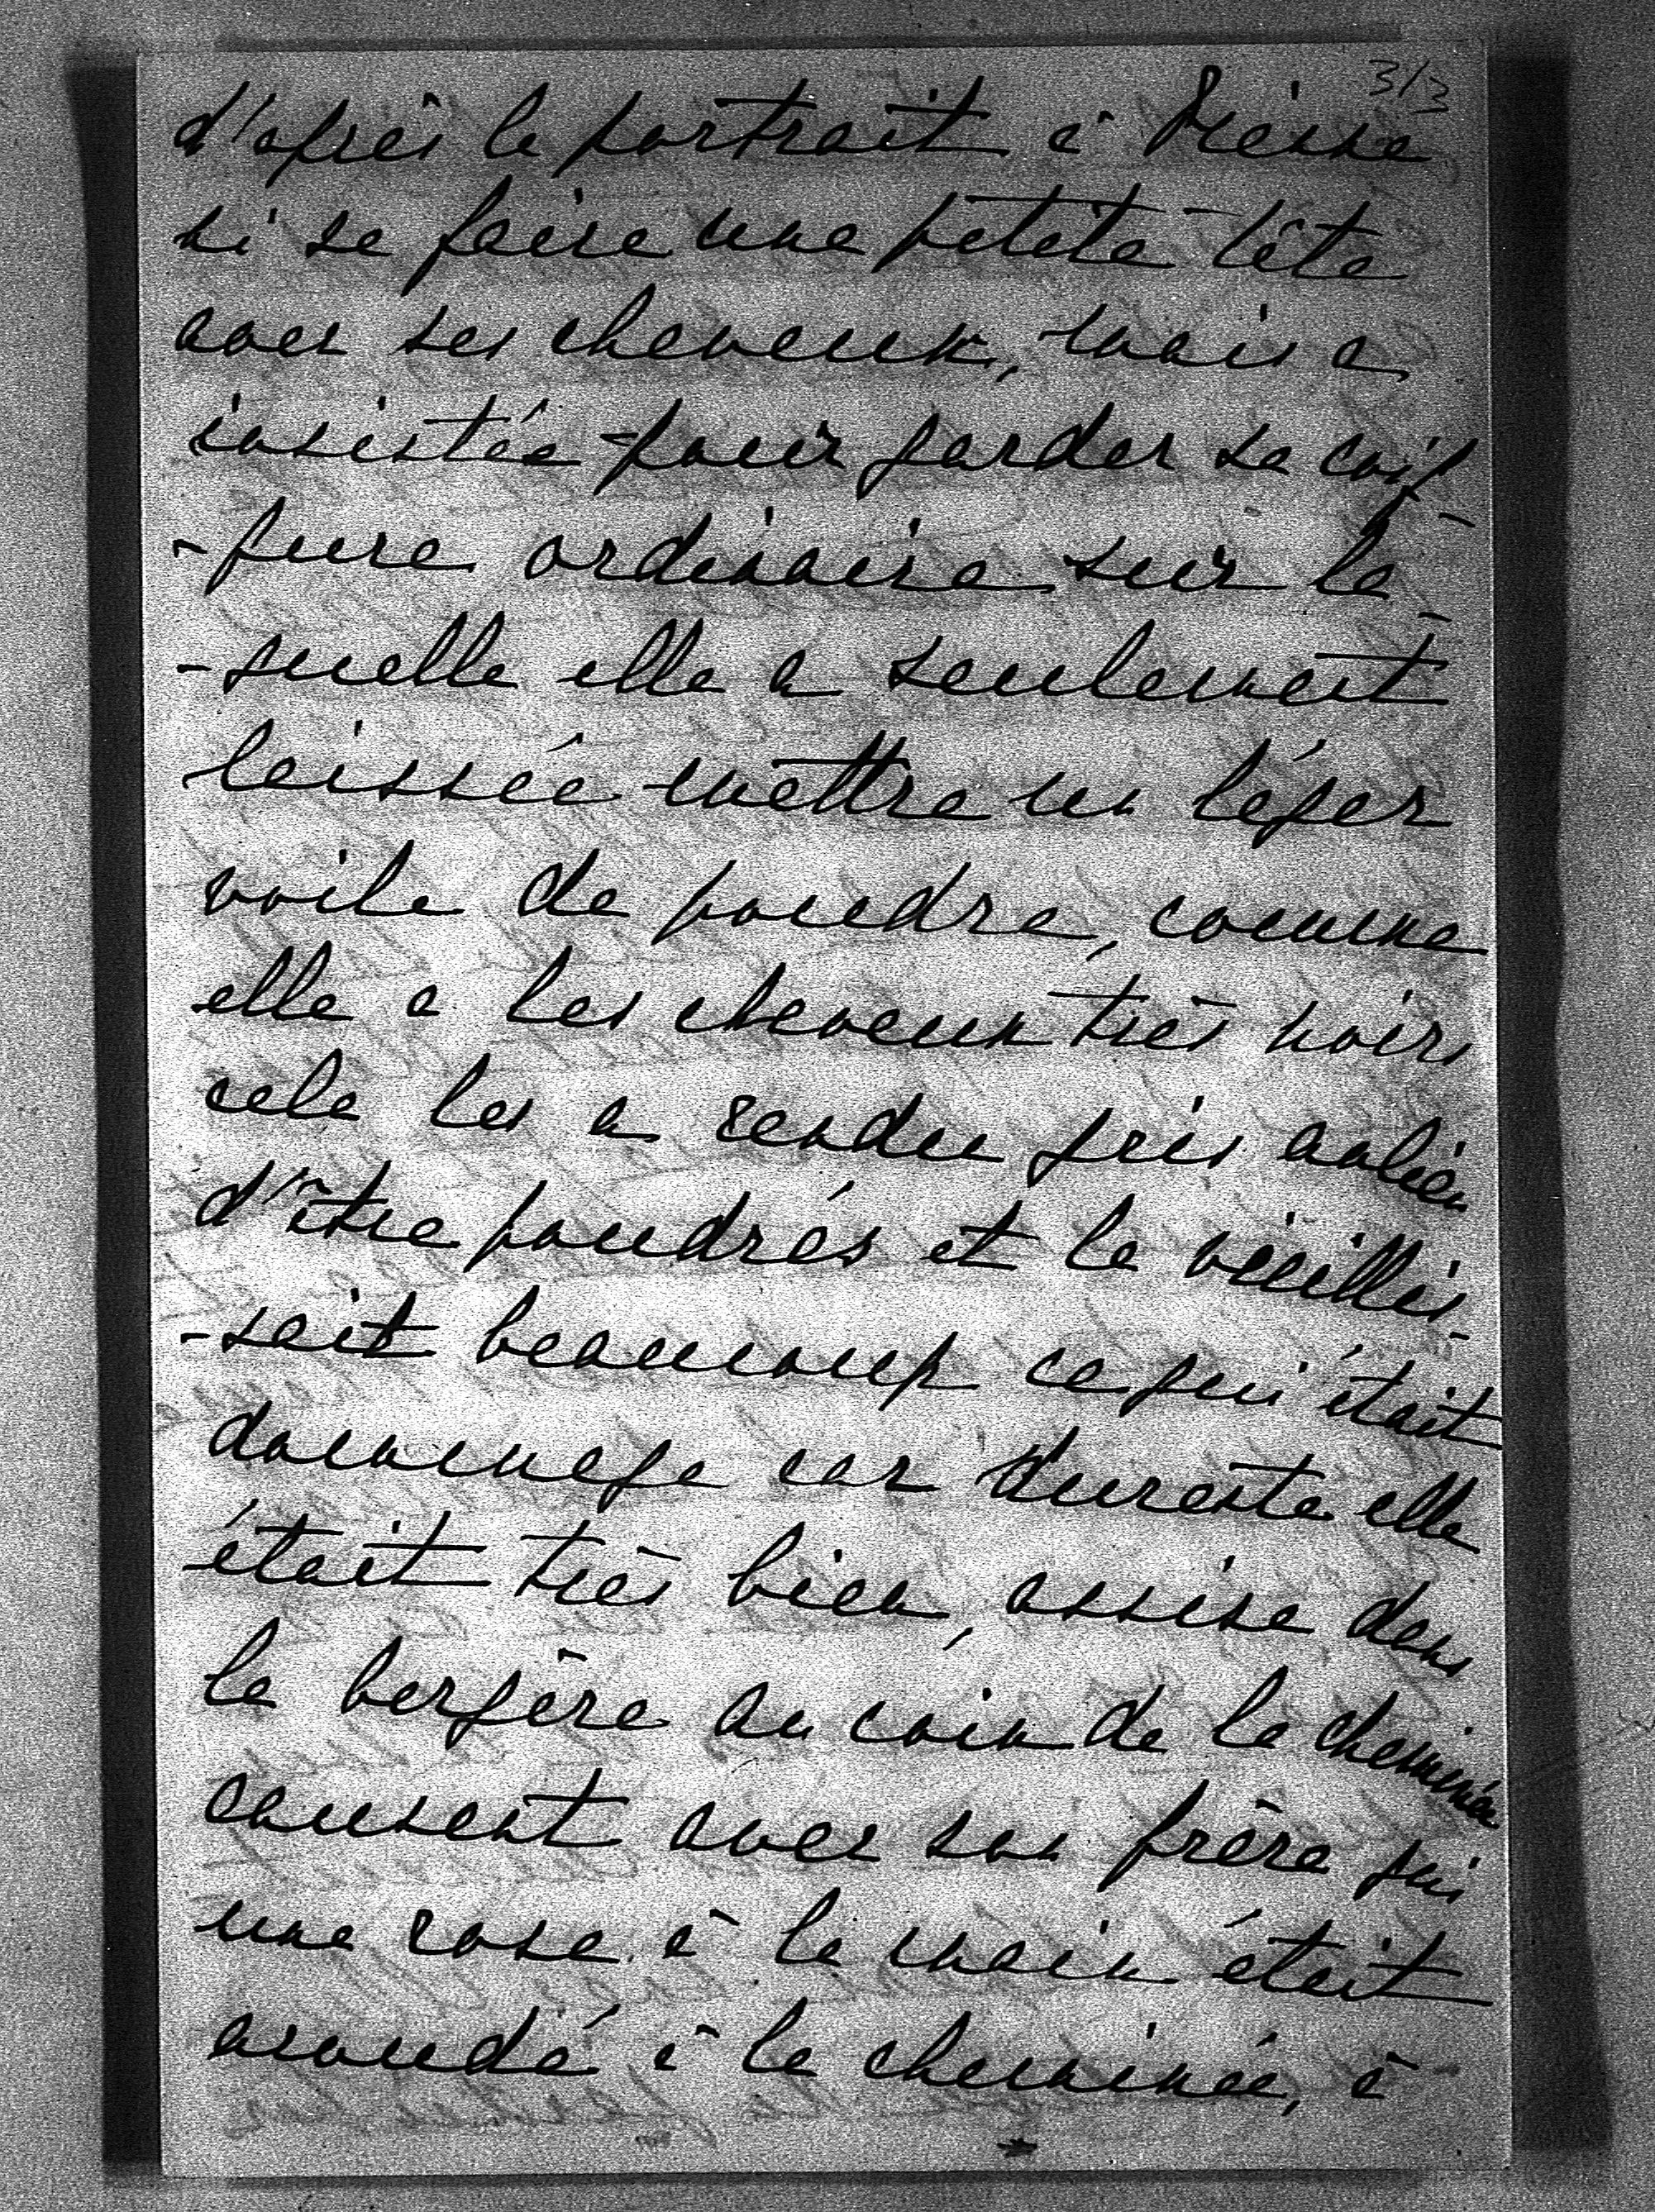 3/3
d'après le portrait à Vienne
ni se faire une petite tête
avec ses cheveux, mais a
insistée pour garder sa coif-
-fure ordinaire sur la-
-quelle elle a seulement
laissée mettre un léger
voile de poudre, comme
elle a les cheveux très noirs
cela les a rendu gris aulieu
d'être poudrés et la vieillis-
-sait beaucoup ce qui était
dommage car dureste elle
était très bien, assise dans
la bergère au coin de la cheminée
causant avec son frère qui
une rose à la main était
accoudé à la cheminée, à